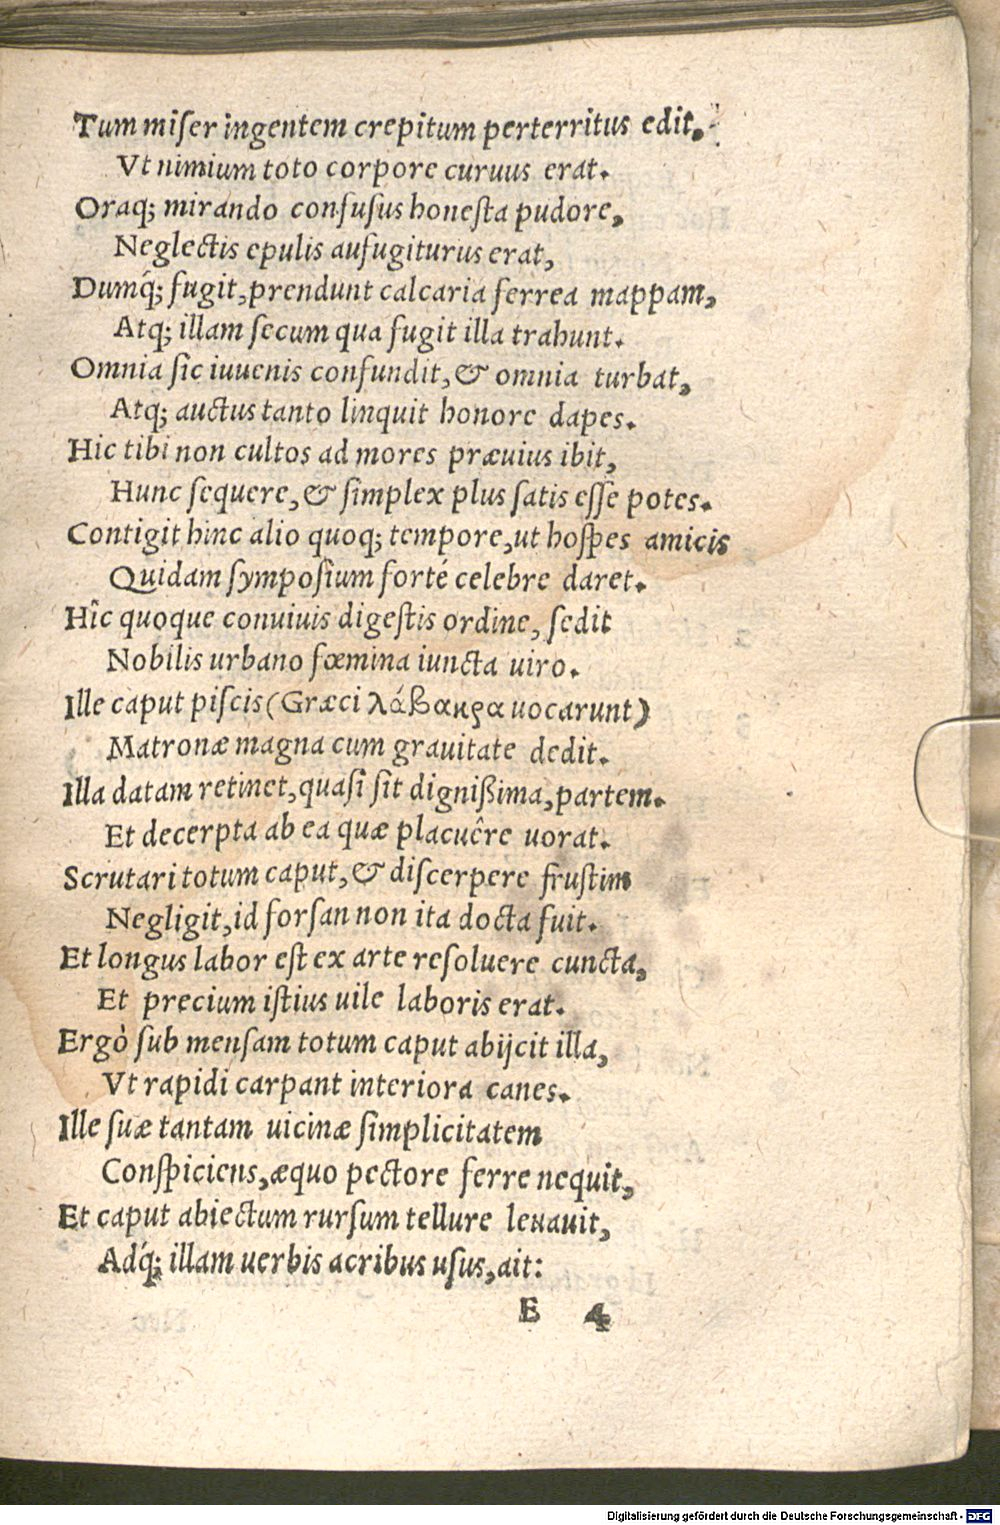 Tum miſer ingentem crepitum perterritus edit,
Vt nimium toto corpore curuus erat.
Oraq; mirando confuſus honeſta pudore,
Neglectis epulis aufugiturus erat,
Dumq́; fugit, prendunt calcaria ferrea mappam,
Atq; illam ſecum qua fugit illa trahunt.
Omnia ſic iuuenis confundit, & omnia turbat,
Atq; auctus tanto linquit honore dapes.
Hic tibi non cultos ad mores præuius ibit,
Hunc ſequere, & ſimplex plus ſatis eſſe potes.
Contigit hinc alio quoq; tempore, ut hoſpes amicis
Quidam ſympoſium forté celebre daret.
Hîc quoque conuiuis digeſtis ordine, ſedit
Nobilis urbano fœmina iuncta uiro.
Ille caput piſcis (Græci λάβακρα uocarunt)
Matronæ magna cum grauitate dedit.
Illa datam retinet, quaſi ſit digniſſima, partem.
Et decerpta ab ea quæ placuêre uorat.
Scrutari totum caput, & diſcerpere fruſtim
Negligit, id forſan non ita docta fuit.
Et longus labor eſt ex arte reſoluere cuncta,
Et precium iſtius uile laboris erat.
Ergò ſub menſam totum caput abijcit illa,
Vt rapidi carpant interiora canes.
Ille ſuæ tantam uicinæ ſimplicitatem
Conſpiciens, æquo pectore ferre nequit,
Et caput abiectum rurſum tellure leuauit,
Adq́; illam uerbis acribus uſus, ait:
E 4
Digitalisierung gefördert durch die Deutsche Forschungsgemeinschaft - DFG